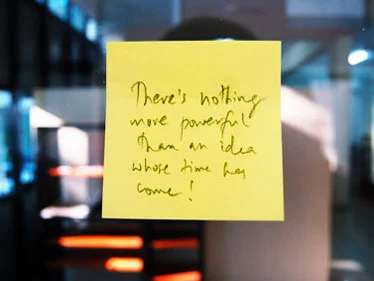 There's nothing
more powerful
than an idea
whose time has
come!